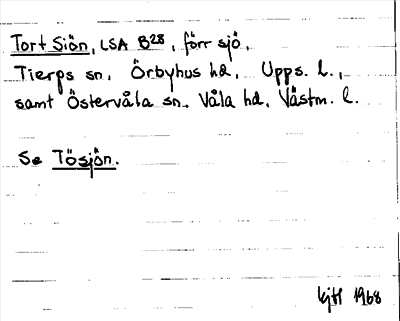 Tort Siön, LSA B28, förr sjö,
Tierps sn, Örbyhus hd, Upps. l.,
samt Östervåla sn, Våla hd, Västm. l.
Se Tösjön.
1968